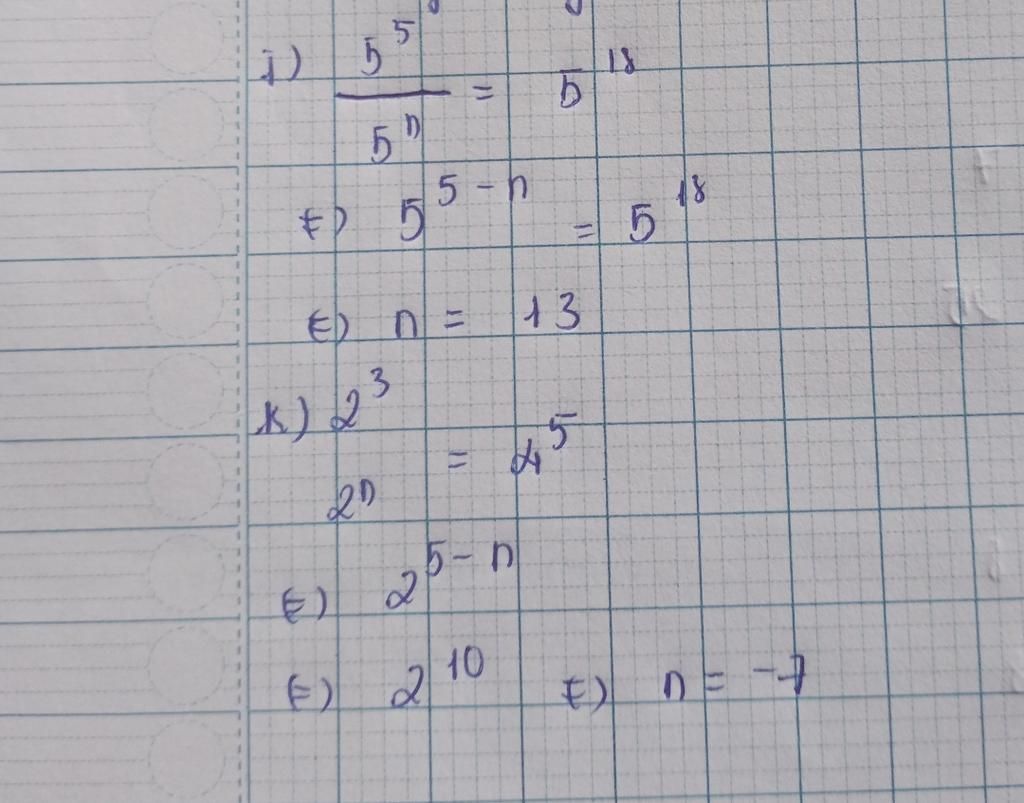 j) 5^5 / 5^n = 5^18
E) 5^(5-n) = 5^18
E) n = 13
k) 2^3 / 2^n = 4^5
E) 2^(5-n)
E) 2^10 E) n = -7